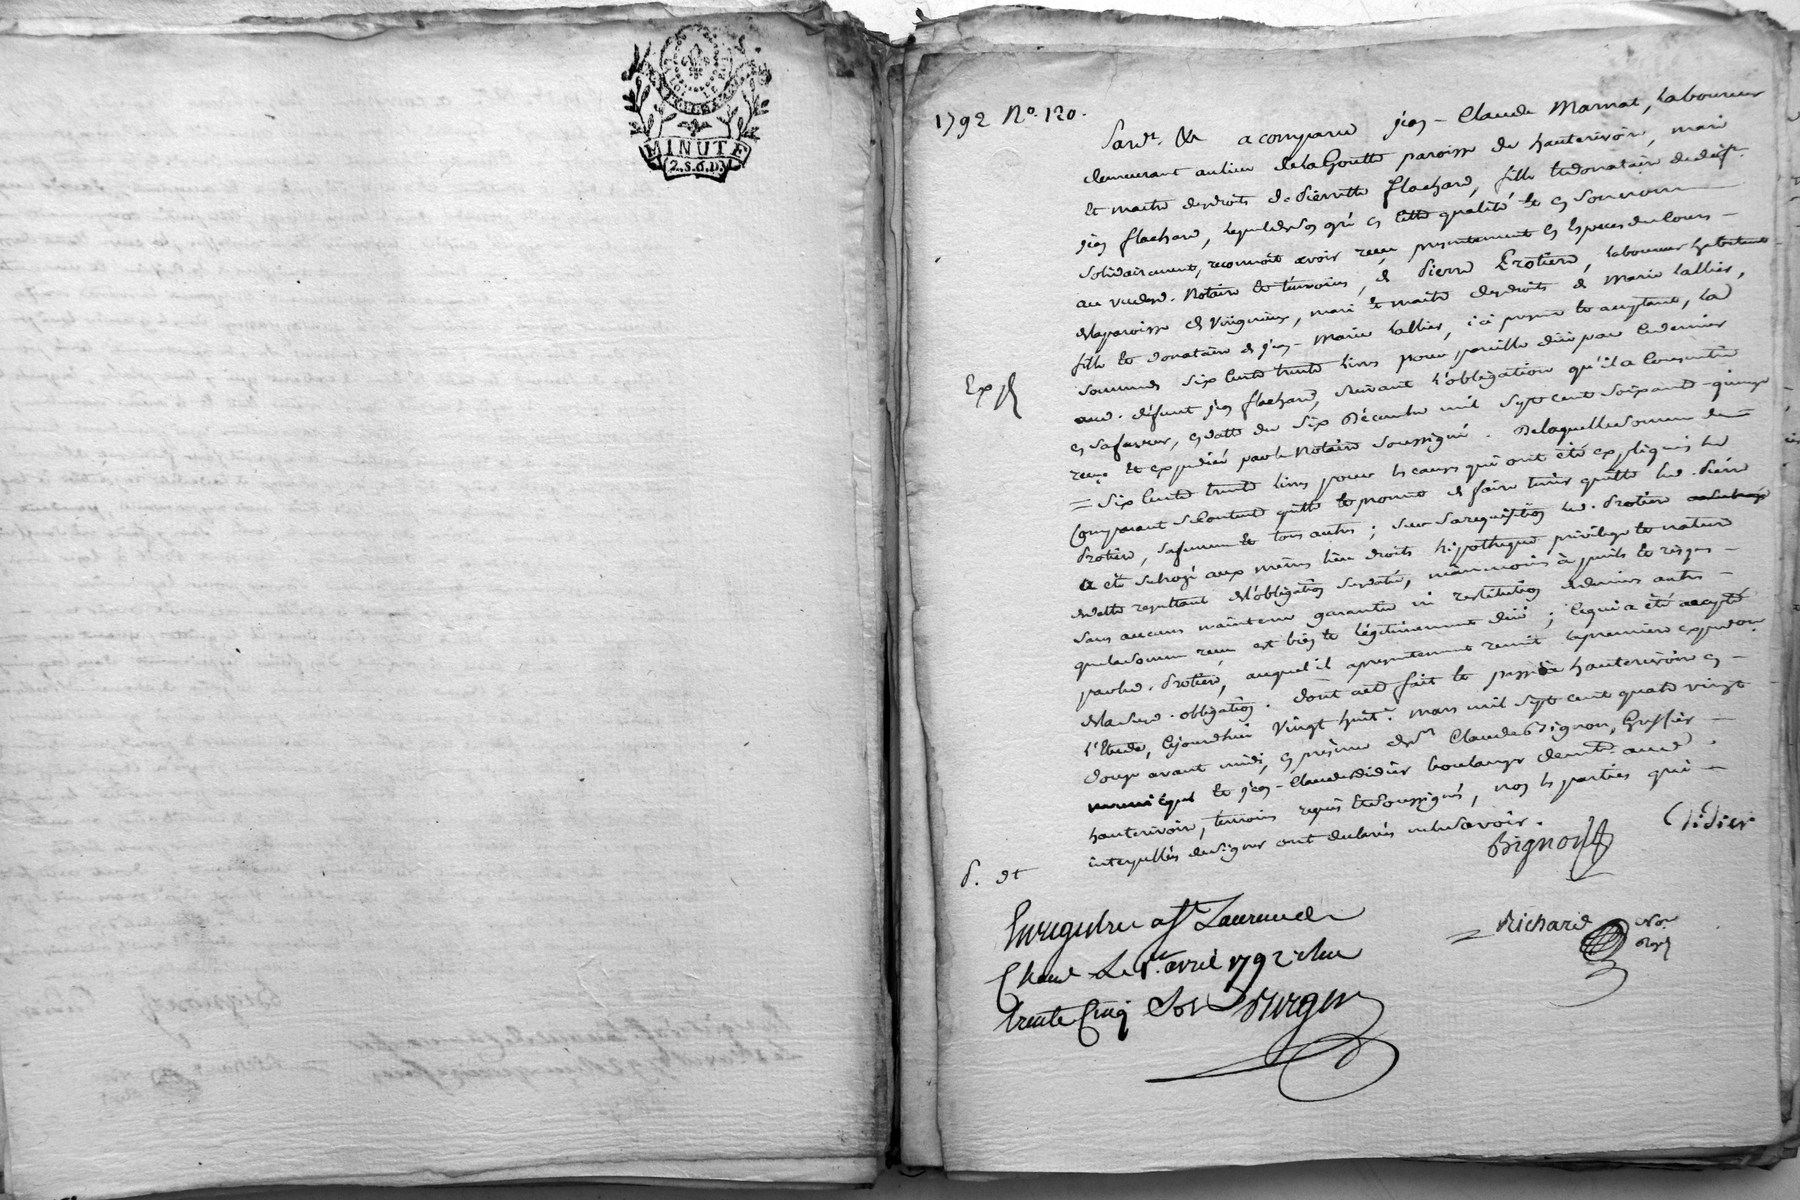 MINUTE
2.S.6.D.
1792 N°. 120.
Pard.t &c a comparu jean-Claude Marnat, laboureur
demeurant au lieu de la Goutte paroisse de hauterivoire, mari
et maitre des droits de Pierrette flachard, fille et donataire de déft.
jean flachard, lequel de son gré en cette qualité et en son nom
solidairement, reconnoît avoir reçu presentement en especes du Cours
au vu desd. Notaire et témoins, de Pierre Protiere, laboureur habitant
de la paroisse de Virigneux, mari et maitre des droits de Marie lallier,
fille et donataire de jean-Marie lallier, ici present et acceptant, la
somme de six cents trente livres pour pareille düe par ce dernier
aud. défunt jean flachard, suivant l'obligation qu'il a Consentie
en sa faveur, en datte du six Décembre mil sept cent soixante-quinze
reçue et expediée par le Notaire soussigné. De laquelle somme de
= six cents trente livres pour les causes qui ont été expliquées led.
Comparant se Contente quitte et promet de faire tenir quitte led. Pierre
Protiere, sa femme et tous autres ; sur sa requisition led. Protiere
a été subrogé aux mêmes lieu droits hipotheque privilege et nature
de dette resultant de l'obligation susdatée, néanmoins à perils et risques
sans aucune maintenue garantie ni restitution de deniers autre
que la somme reçue est bien et légitimement düe ; ce qui a été accepté
par led. Protiere, auquel il a presentement remit la premiere expedon.
de la susd. obligation. Dont acte fait et passé à hauterivoire en
l'Etude, Cejourdhui vingt huit.e mars mil sept cent quatre vingt
douze avant midi, en présence de Sr. Claude Bignon, Greffier
et jean-Claude Didier boulanger demt. aud.
hauterivoire, témoins requis et soussignés, non les parties qui
interpellées de signer ont declarés ne le savoir.
Exp.
P. dt
Bignon
Didier
Richard Nore.
Royal
Enregistré a St Laurent de
Cham. Le 1er. avril 1792 Reçu
trente Cinq Sols Durgen